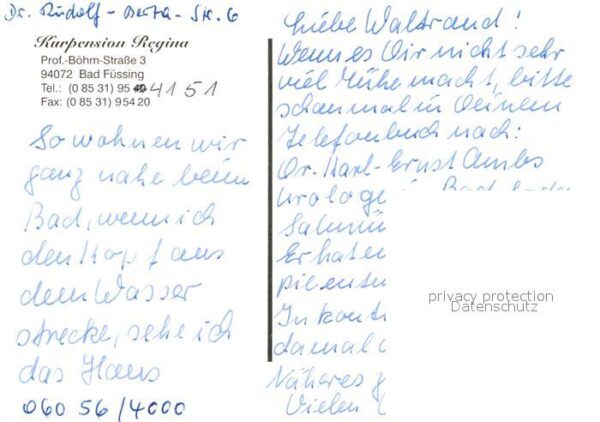 Dr. Rudolf - Berta - Str. 6
Kurpension Regina
Prof.-Böhm-Straße 3
94072 Bad Füssing
Tel.: (0 85 31) 95 4151
Fax: (0 85 31) 954 20
So wohnen wir
ganz nahe beim
Bad, wenn ich
den Kopf aus
dem Wasser
strecke, sehe ich
das Haus
060 56 / 4000
Liebe Waltraud!
Wenn es Dir nicht sehr
viel Mühe macht, bitte
schau mal in Deinem
Telefonbuch nach:
Dr. Karl-Ernst Ambs
Urologe Bad
Salmün
Er hat
In kont
damal
Näheres
Vielen
privacy protection
Datenschutz